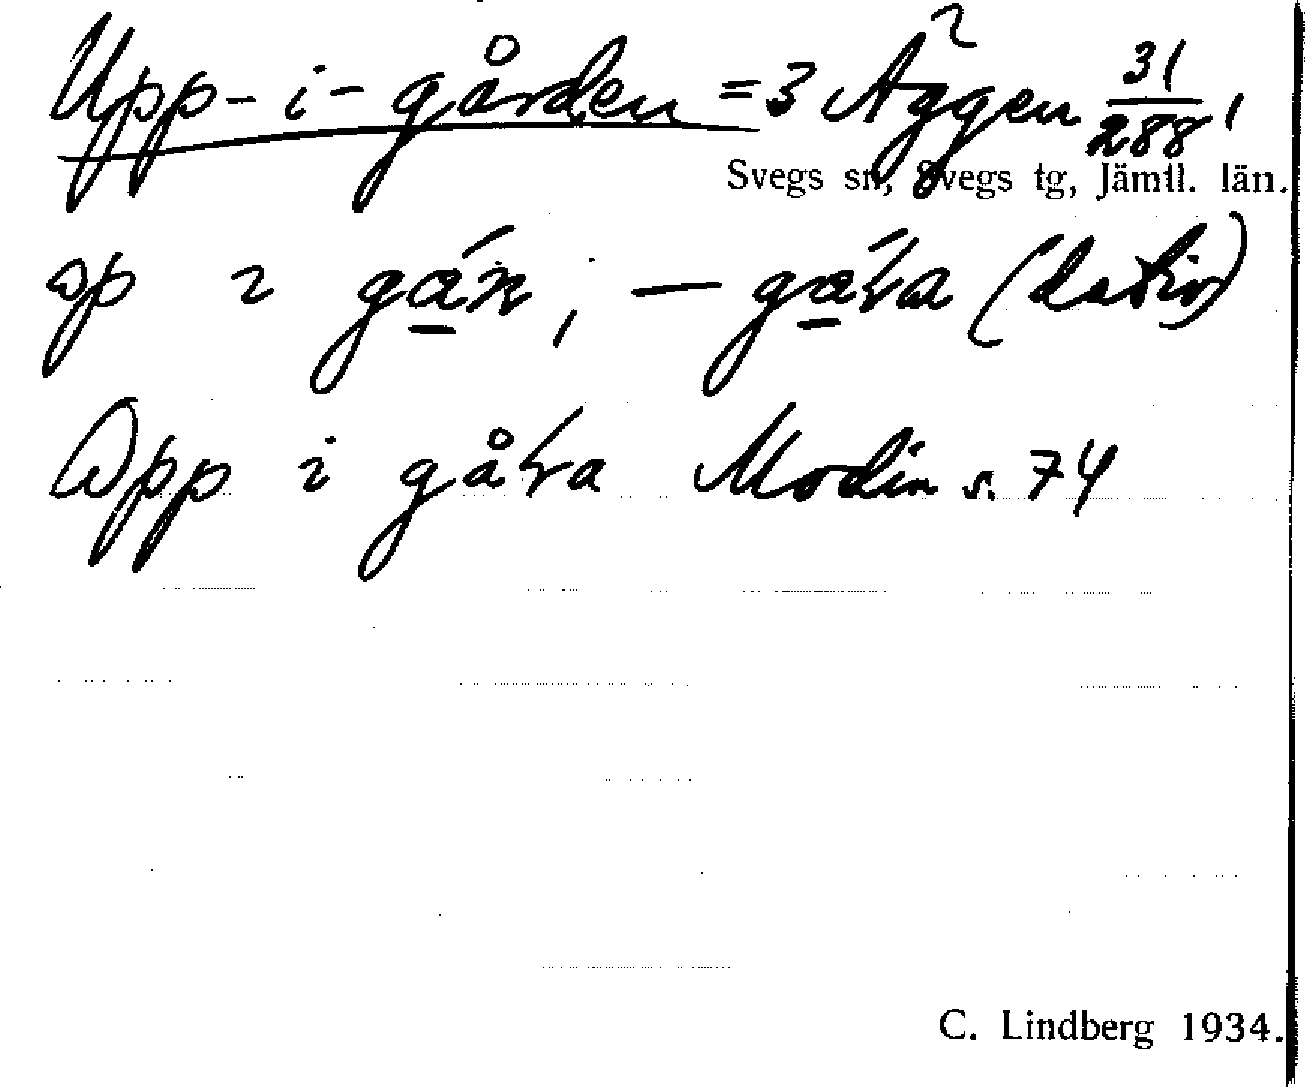 Upp-i-gården = 3 Äggen 31/288,
Svegs sn, Svegs tg, Jämtl. län.
op i gån, — gåɽa (dativ)
Opp i gåra Modin s. 74
C. Lindberg 1934.